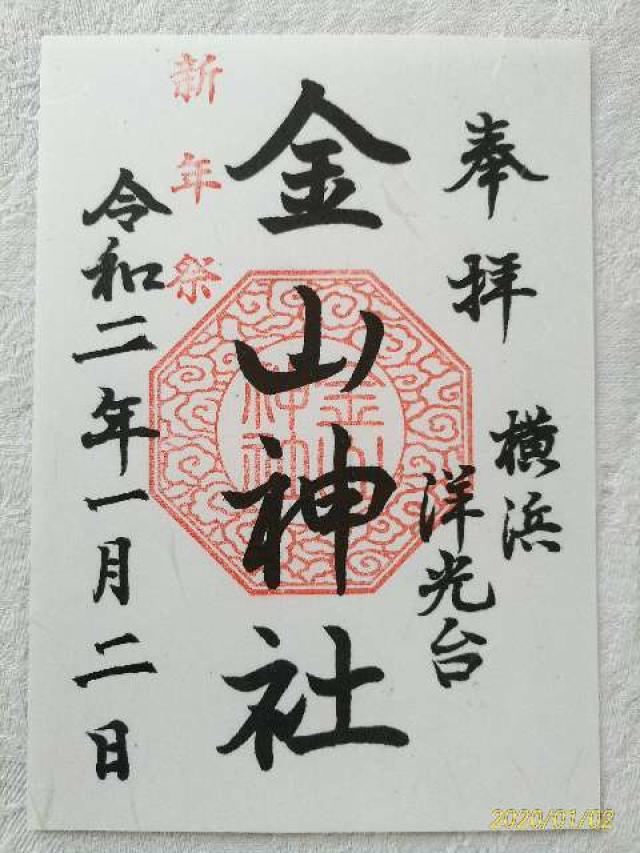 奉拝
横浜
洋光台
金山神社
新年祭
令和二年一月二日
2020/01/02